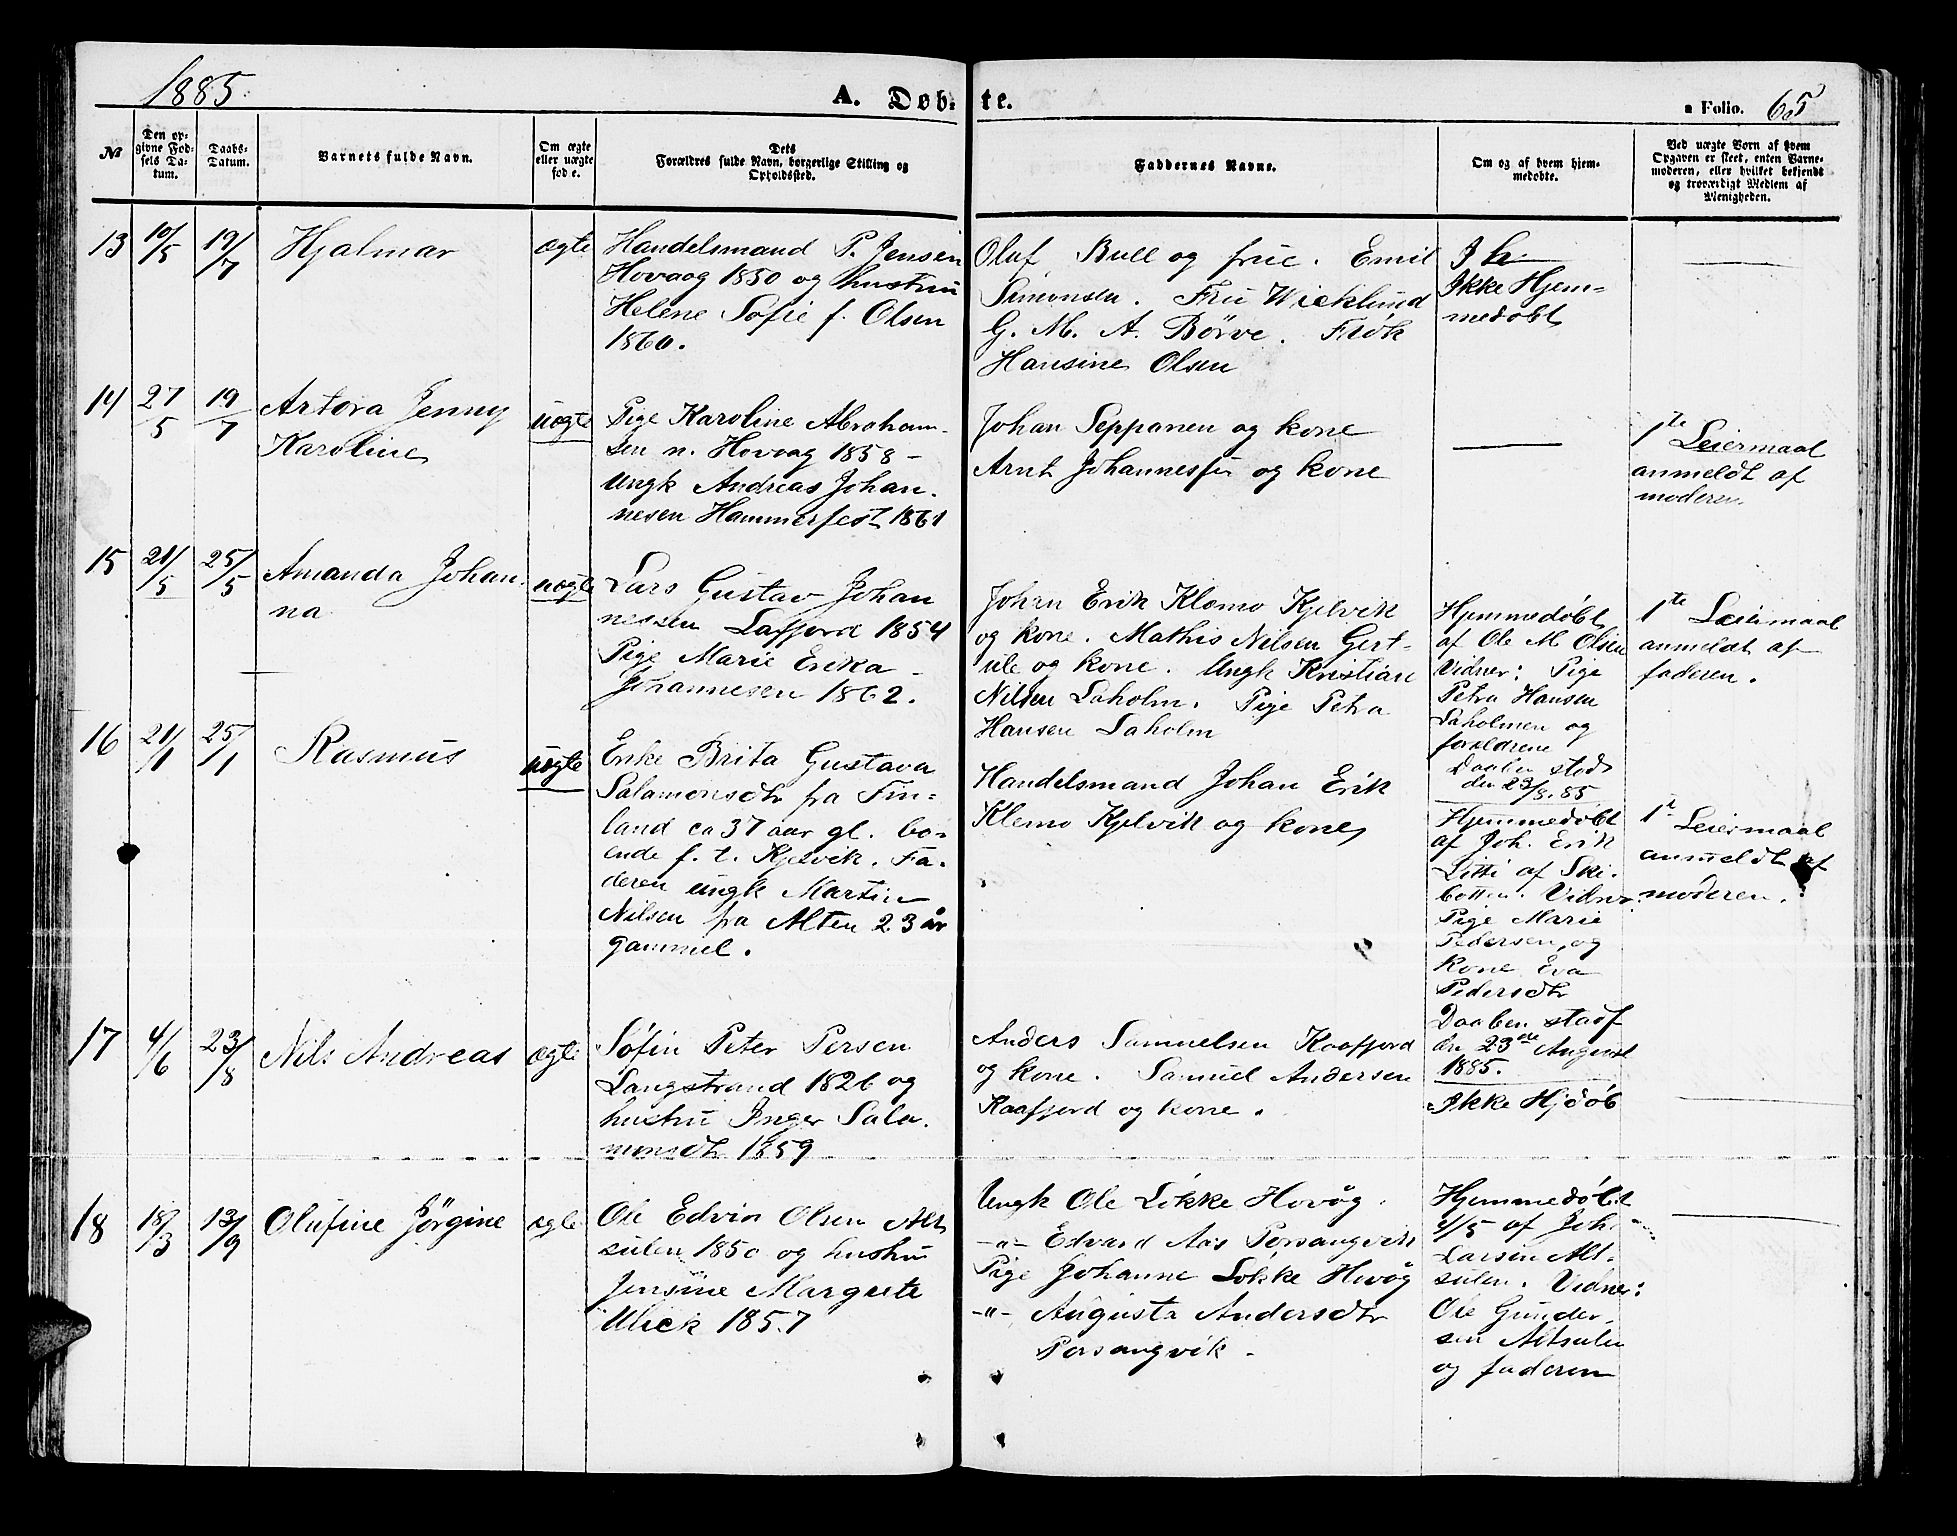 1885.
A. Døb-te.
a Folio. 65
№
Den op-
givne Fød-
sels Da-
tum.
Daabs-
Datum.
Barnets fulde Navn.
Om ægte
eller uægte
fød e.
Dets
Forældres fulde Navn, borgerlige Stilling og
Opholdssted.
Faddernes Navne.
Om og af hvem hjem-
medøbte.
Ved uægte Børn af hvem
Opgaven er skeet, enten Barne-
moderen, eller hvilket bekjendt
og troværdigt Medlem af
Menigheden.
13 10/5 19/7 Hjalmar ægte
Handelsmand P. Jensen
Hovaag 1850 og hustru
Helene Sofie f. Olsen
1860.
Oluf Bull og frue. Emil
Simonsen. Fru Wicklund
G. M. A. Børve. Frøk
Hansine Olsen
Ikke Hjem-
medøbt
14 27/5 19/7 Artora Jenny
Karoline
uægte
Pige Karoline Abraham-
sen n. Hovaag 1858 -
Ungk Andreas Johan.
nesen Hammerfest 1861
Johan Seppanen og kone
Arnt Johannessen og kone
1te Leiermaal
anmeldt af
moderen
15 21/5 25/5 Amanda Johan
na
uægte
Lars Gustav Johan
nessen Lafjord 1854
Pige Marie Erika
Johannesen 1862.
Johan Erik Klemo Kjelvik
og kone. Mathis Nilsen Gert-
ule og kone. Ungk Kristian
Nilsen Laholm. Pige Petra
Hansen Laholm
Hjemmedøbt
af Ole M Olsen
Vidner: Pige
Petra Hansen
Laholmen og
forældrene
Daaben stadf
den 23/8. 85
1te Leiermaal
anmeldt af
faderen.
16 21/1 25/1 Rasmus uægte
Enke Brita Gustava
Salamonsdtr fra Fin-
land ca 37 aar gl. bo-
ende f. t. Kjelvik. Fa-
deren ungk Martin
Nilsen fra Alten 23 år
gammel.
Handelsmand Johan Erik
Klemo Kjelvik og kone
Hjemmedøbt
af Joh. Erik
Litti af Ski-
botten. Vidner
Pige Marie
Pedersen og
kone Eva
Pedersdtr
Daaben stadf
den 23de August
1885.
1t Leiermaal
anmeldt af
moderen.
17 4/6 23/8 Nils Andreas ægte
Søfin Peter Persen
Langstrand 1826 og
hustru Inger Sala-
monsdtr 1859
Anders Samuelsen Kaafjord
og kone. Samuel Andersen
Kaafjord og kone.
Ikke Hjdøb
18 18/3 13/9 Olufine Jörgine ægte
Ole Edvin Olsen Alt
sulen 1850 og hustru
Jensine Margrete
Ulick 1857
Ungk Ole Løkke Hovøg
-"- Edvard Aas Porsangvik
Pige Johanne Løkke Hovøg
-"- Augusta Andersdtr
Porsangvik -
Hjemmedøbt
4/5 af Joh.
Larsen Alt-
sulen. Vidner:
Ole Gunder-
sen Altsulen
og faderen